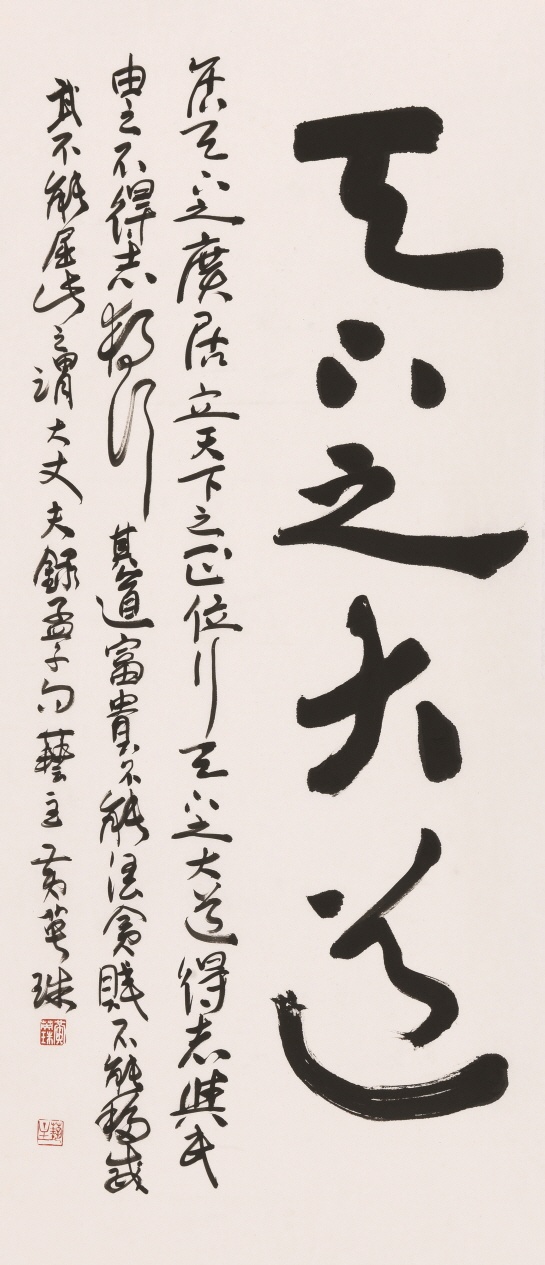 天下之大道
居天下之廣居立天下之正位行天下之大道得志與民
由之不得志獨行其道富貴不能淫貧賤不能移威
武不能屈此之謂大丈夫錄孟子句藝主黃篤珠